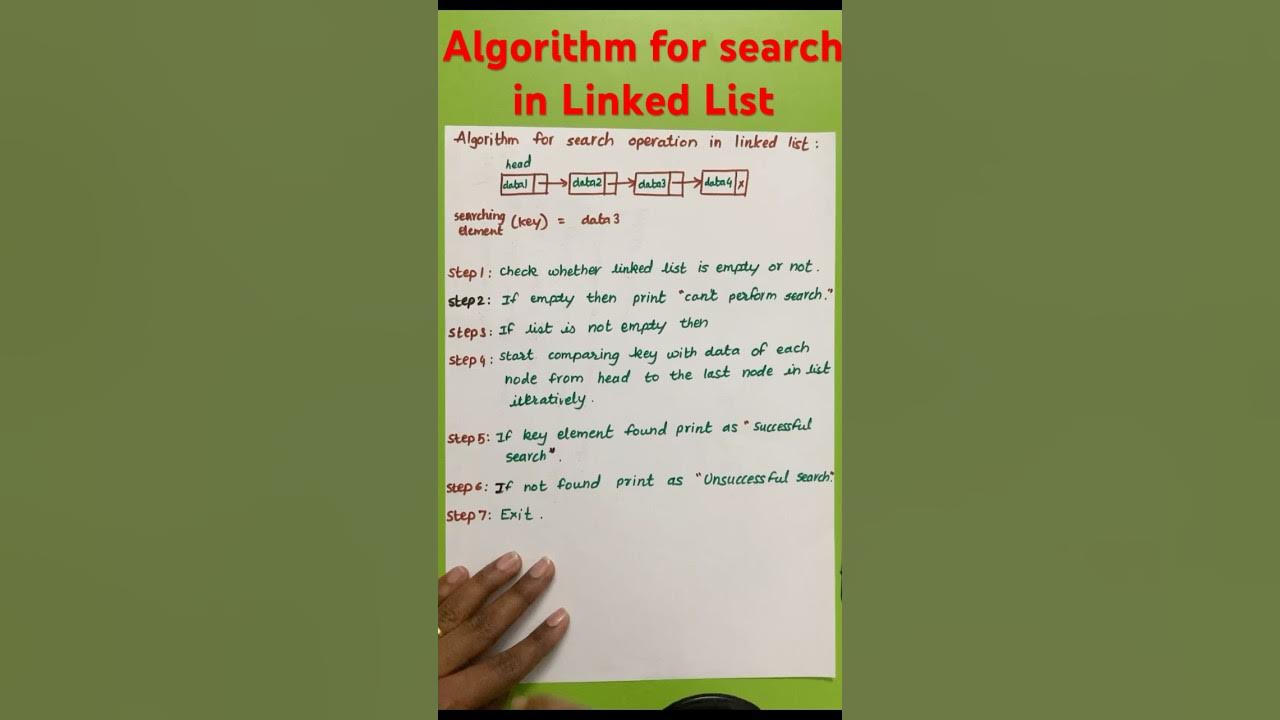 Algorithm for search
in Linked List
Algorithm for search operation in linked list :
head
data1 data2 data3 data4 x
searching
element (key) = data3
Step1: check whether linked list is empty or not.
step2: If empty then print "can't perform search."
steps: If list is not empty then
step4: start comparing key with data of each
node from head to the last node in list
iteratively.
step5: If key element found print as "successful
search".
step6: If not found print as "Unsuccessful search."
Step7: Exit.